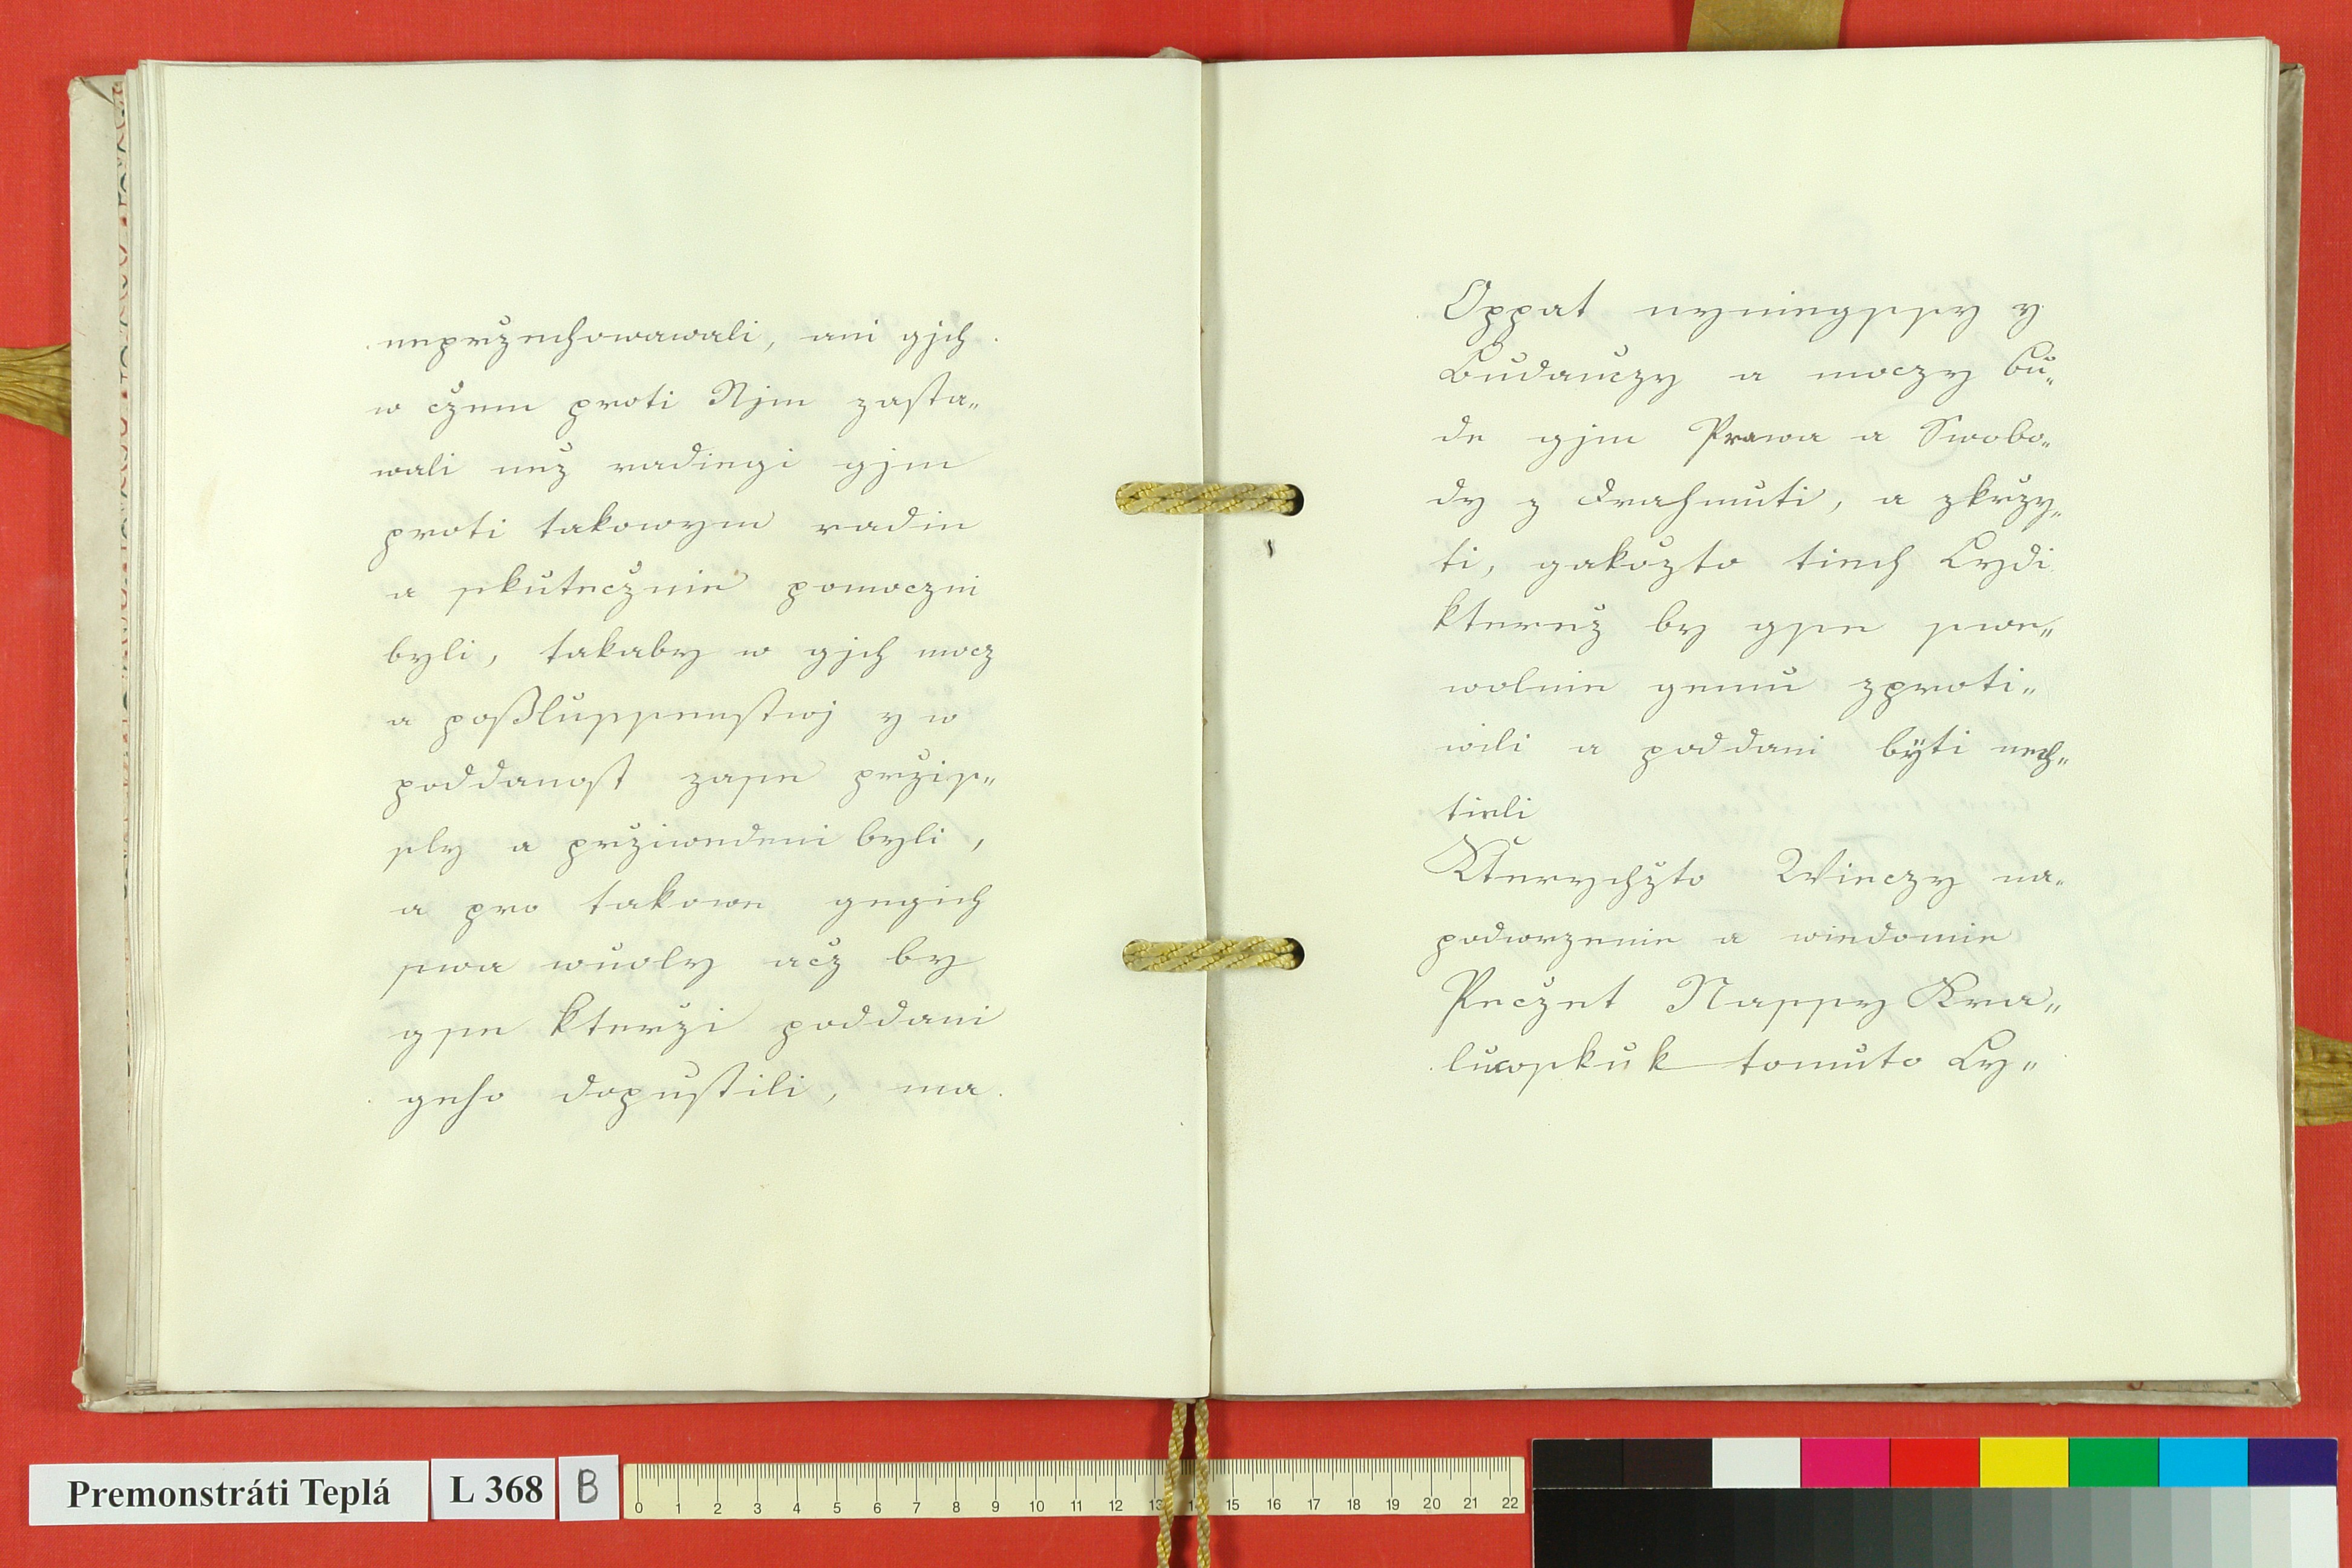 neprzechowawali, ani gjch
w czem proti Njm zasta„
wali než radiegi gjm
proti takowym radin
a skutečznie pomoczni
byli, takaby w gjch mocz
a poßlussenstwj y w
poddanost zase pržis„
sly a pržiwedeni byli,
a pro takowe gegich
swa wuoly ačz by
gse kterži poddani
geho dopustili, ma
Oppat nyniegssy y
Budauczy a moczy bu„
de gjm Prawa a Swobo„
dy z drahnuti, a zkržy„
ti, gakožto tiech Lydi
kterež by gse swe„
wolnie gemu zproti„
wili a poddani býti nech„
tieli
Kterychžto Wieczy na„
podwrzenie a wiedomie
Pečzet Nassy Kra„
luwsku k tomuto Ly„
Premonstráti Teplá
L 368
B
0 1 2 3 4 5 6 7 8 9 10 11 12 13 14 15 16 17 18 19 20 21 22